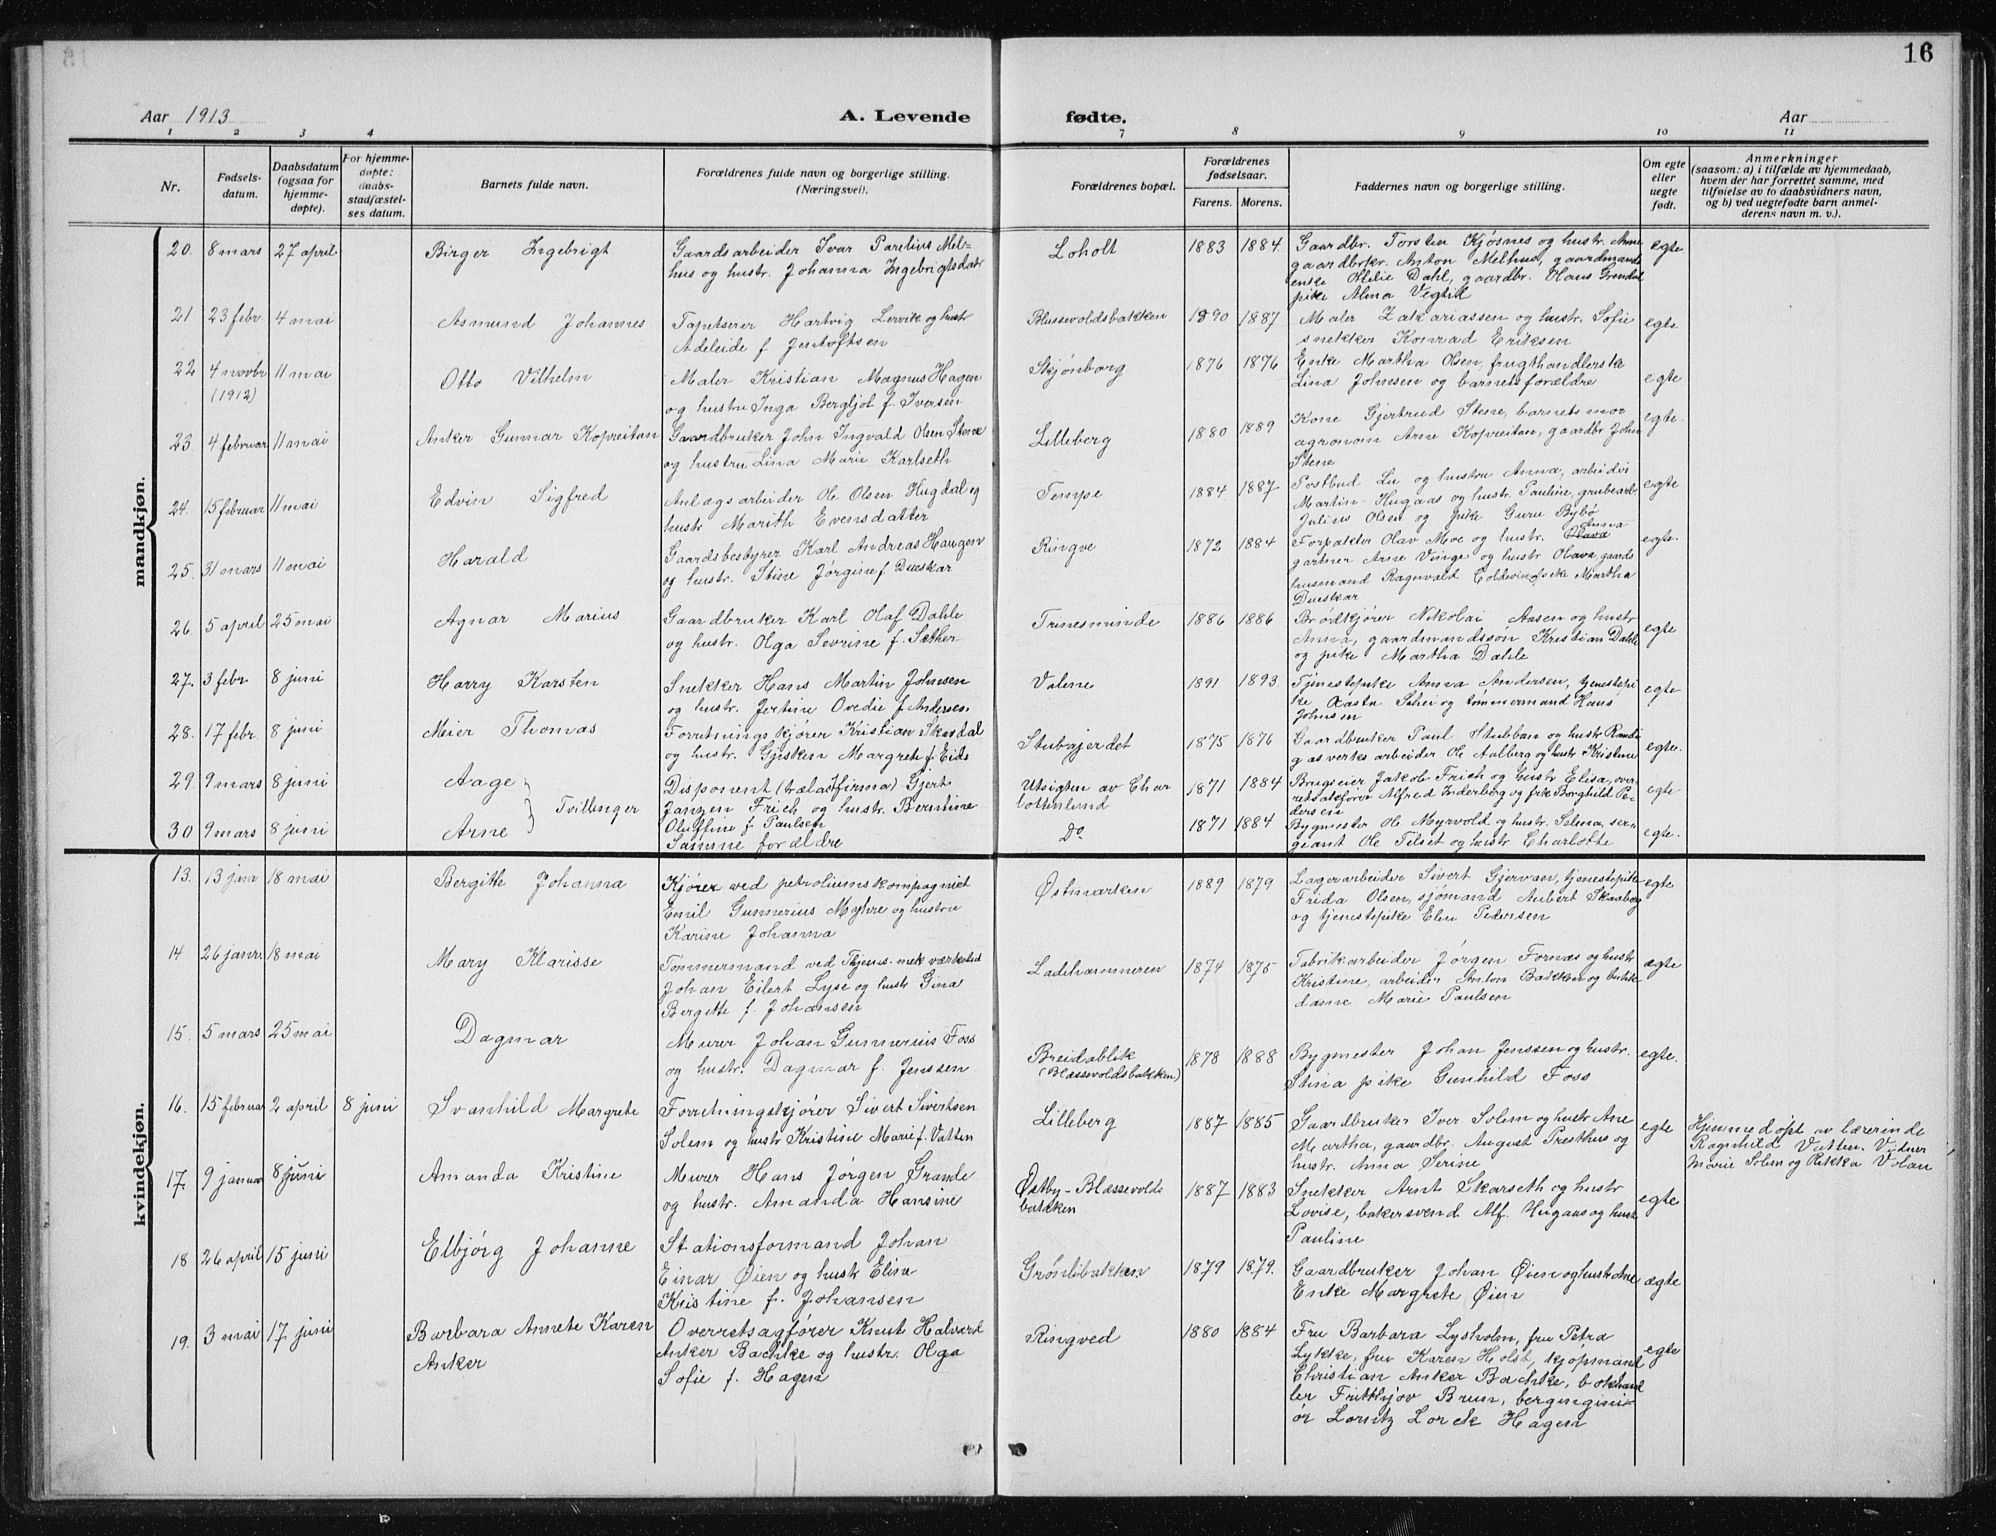 16
Aar 1913
A. Levende
fødte.
Aar
1 2 3 4 7 8 9 10 11
Nr.
Fødsels-
datum.
Daabsdatum
(ogsaa for
hjemme-
døpte).
For hjemme-
døpte:
daabs-
stadfæstel-
ses datum.
Barnets fulde navn.
Forældrenes fulde navn og borgerlige stilling.
(Næringsvei).
Forældrenes bopæl.
Forældrenes
fødselsaar.
Farens. Morens.
Faddernes navn og borgerlige stilling.
Om egte
eller
uegte
født.
Anmerkninger
(saasom: a) i tilfælde av hjemmedaab,
hvem der har forrettet samme, med
tilføielse av to daabsvidners navn,
og b) ved uegtefødte barn anmel-
derens navn m. v.).
mandkjøn.
20. 8 mars 27 april Birger Ingebrigt
Gaardsarbeider Ivar Parelius Mel-
hus og hustr. Johanna Ingebrigtsdatr
Loholt 1883 1884.
Gaardbr. Torsten Kjøsnes og hustr. Anne
gaardbrkr. Anton Melhus, gaardmands
enke Dahl, gaardbr. Hans Grendal
pike Alma Vegtik
egte
21 23 febr. 4 mai Asmund Johannes
Tapetserer Hartvig Lervik og hustr
Adeleide f. Jentoftsen
Blussevoldsbakken 1890 1887
Maler Zakariassen og hustr. Sofie
snekker Konrad Eriksen
egte
22 4 novbr 11 mai Otto Vilhelm
(1912)
Maler Kristian Magnus Hagen
og hustru Inga Bergljot f. Iversen
Skjønborg 1876 1876
Enke Martha Olsen, frugthandlerske
Lina Johnsen og barnets forældre
egte
23 4 februar 11 mai Anker Gunnar Kopreitan
Gaardbruker John Ingvald Olsen Stene
og hustru Lina Marie Karlseth
Lilleberg 1880 1889
Kone Gjertrud Stene, barnets mor
agronom Arne Kopreitan, gaardbr John
Stene
egte.
24. 15 februar 11 mai Edvin Sigfred
Anlægsarbeider Ole Olsen Hugdal og
hustr Marith Evensdatter
Tempe 1884 1887
Postbud Lu og hustru Anna, arbeider
Martin Hugaas og hustr. Pauline, grubearb.
Julius Olsen og pike Guru Bybø
egte
25. 31 mars 11 mai Harald
Gaardsbestyrer Karl Andreas Haugen
og hustr. Stine Jørgine f Dueskar
Ringve 1872 1884
Anna
Forpakter Olav Moe og hustr. Olava
gartner Arne Vinge og hustr Olava, gaards
husmand Ragnvald Coldevin, pike Martha
Dueskar
egte.
26. 5 april 25 mai Agnar Marius
Gaardbruker Karl Olaf Dahle
og hustr. Olga Sevrine f. Sæther
Trinesminde 1886 1886
Brødkjører Nikolai Aasen og hustr
Anna, gaardmandssøn Kristian Dahle
og pike Martha Dahle
egte
27. 3 febr. 8 juni Harry Karsten
Snekker Hans Martin Johnsen
og hustr. Jertine Ovedie f Andersen
Valene 1891 1893
Tjenestepike Anna Andersen, tjenestepi
ke Aasta Schei og tømmermand Hans
Johnsen
egte
28. 17 febr. 8 juni Meier Thomas
Forretningskjører Kristian Skasdal
og hustr. Gjesken Margrete f. Eids
Stubajerdet 1875 1876
Gaardbruker Paul Stubban og hustr Randi
gasverksarbeider Ole Aalberg og hustr Kristine
egte.
29. 9 mars 8 juni Aage
Tvillinger
Disponent (trælastfirma) Gjert
Janzen Frich og hustr. Berntine
Oluffine f. Paulsen
Utsigten av Char
lottenlund 1871 1884
Brugseier Jakob Frich og hustr Elisa, over-
retssakfører Alfred Inderberg og frk Borghild Pe-
dersen
egte
30 9 mars 8 juni Arne
Samme forældre
Do 1871 1884
Bygmester Ole Myrvold og hustr. Selma, ser-
geant Ole Tilset og hustr Charlotte
egte.
kvindekjøn.
13. 13 janr 18 mai Bergitte Johanna
Kjører ved petroliumskompagniet
Emil Gunnerius Myhre og hustru
Karine Johanna
Østmarken 1889 1879
Lagerarbeider Sivert Gjervan, tjenestepike
Frida Olsen, sjømand Anbert Skaaborg
og tjenestepike Elen Pedersen
egte
14 26 janr. 18 mai Mary Klarisse
Tømmermand ved Thjems mek værksted
Johan Eilert Lyse og hustr Gina
Bergitte f. Johansen
Ladehammeren 1874 1875
Fabrikarbeider Jørgen Fornæs og hustr
Kristine, arbeider Anton Bakken og butik
dame Marie Paulsen
ægte
15. 5 mars 25 mai Dagmar
Murer Johan Gunnerius Foss
og hustr. Dagmar f. Jenssen
Breidablik
(Blæssevoldsbakken) 1878 1888
Bygmester Johan Jenssen og hustr.
Stina pike Gunhild Foss
egte.
16. 15 februar 2 april 8 juni Svanhild Margrete
Forretningskjører Sivert Sivertsen
Solem og hustr Kristine Marie f. Vatten
Lilleberg 1887 1885
Gaardbruker Iver Solem og hustr Ane
Martha, gaardbr. August Presthus og
hustr. Anna Serine
egte
Hjemmedøpt av lærerinde
Ragnhild Vatten. Vidner
Marie Solem og Rikka Volan
17. 9 januar 8 juni Amanda Kristine
Murer Hans Jørgen Grande
og hustr. Amanda Hansine
Østby - Blæssevolds
bakken 1887 1883
Snekker Arnt Skarseth og hustr
Lovise, bakersvend Alf. Hugaas og hustr
Pauline
egte
18 26 april 15 juni Elbjørg Johanne
Stationsformand Johan
Einar Øien og hustr Elisa
Kristine f. Johansen
Grønlibakken 1879 1879.
Gaardbruker Johan Øien og hustr Ane
Enke Margrete Øien
ægte
19. 3 mai 17 juni Barbara Annete Karen
Anker
Overretsagfører Knut Halvard
Anker Bachke og hustr. Olga
Sofie f. Hagen
Ringved 1880 1884
Fru Barbara Lysholm, fru Petra
Lykke, fru Karen Holst, kjøpmand
Christian Anker Bachke, bokhand
ler Frithjov Brun, bergingini-
ør Lorntz Lorck Hagen
egte